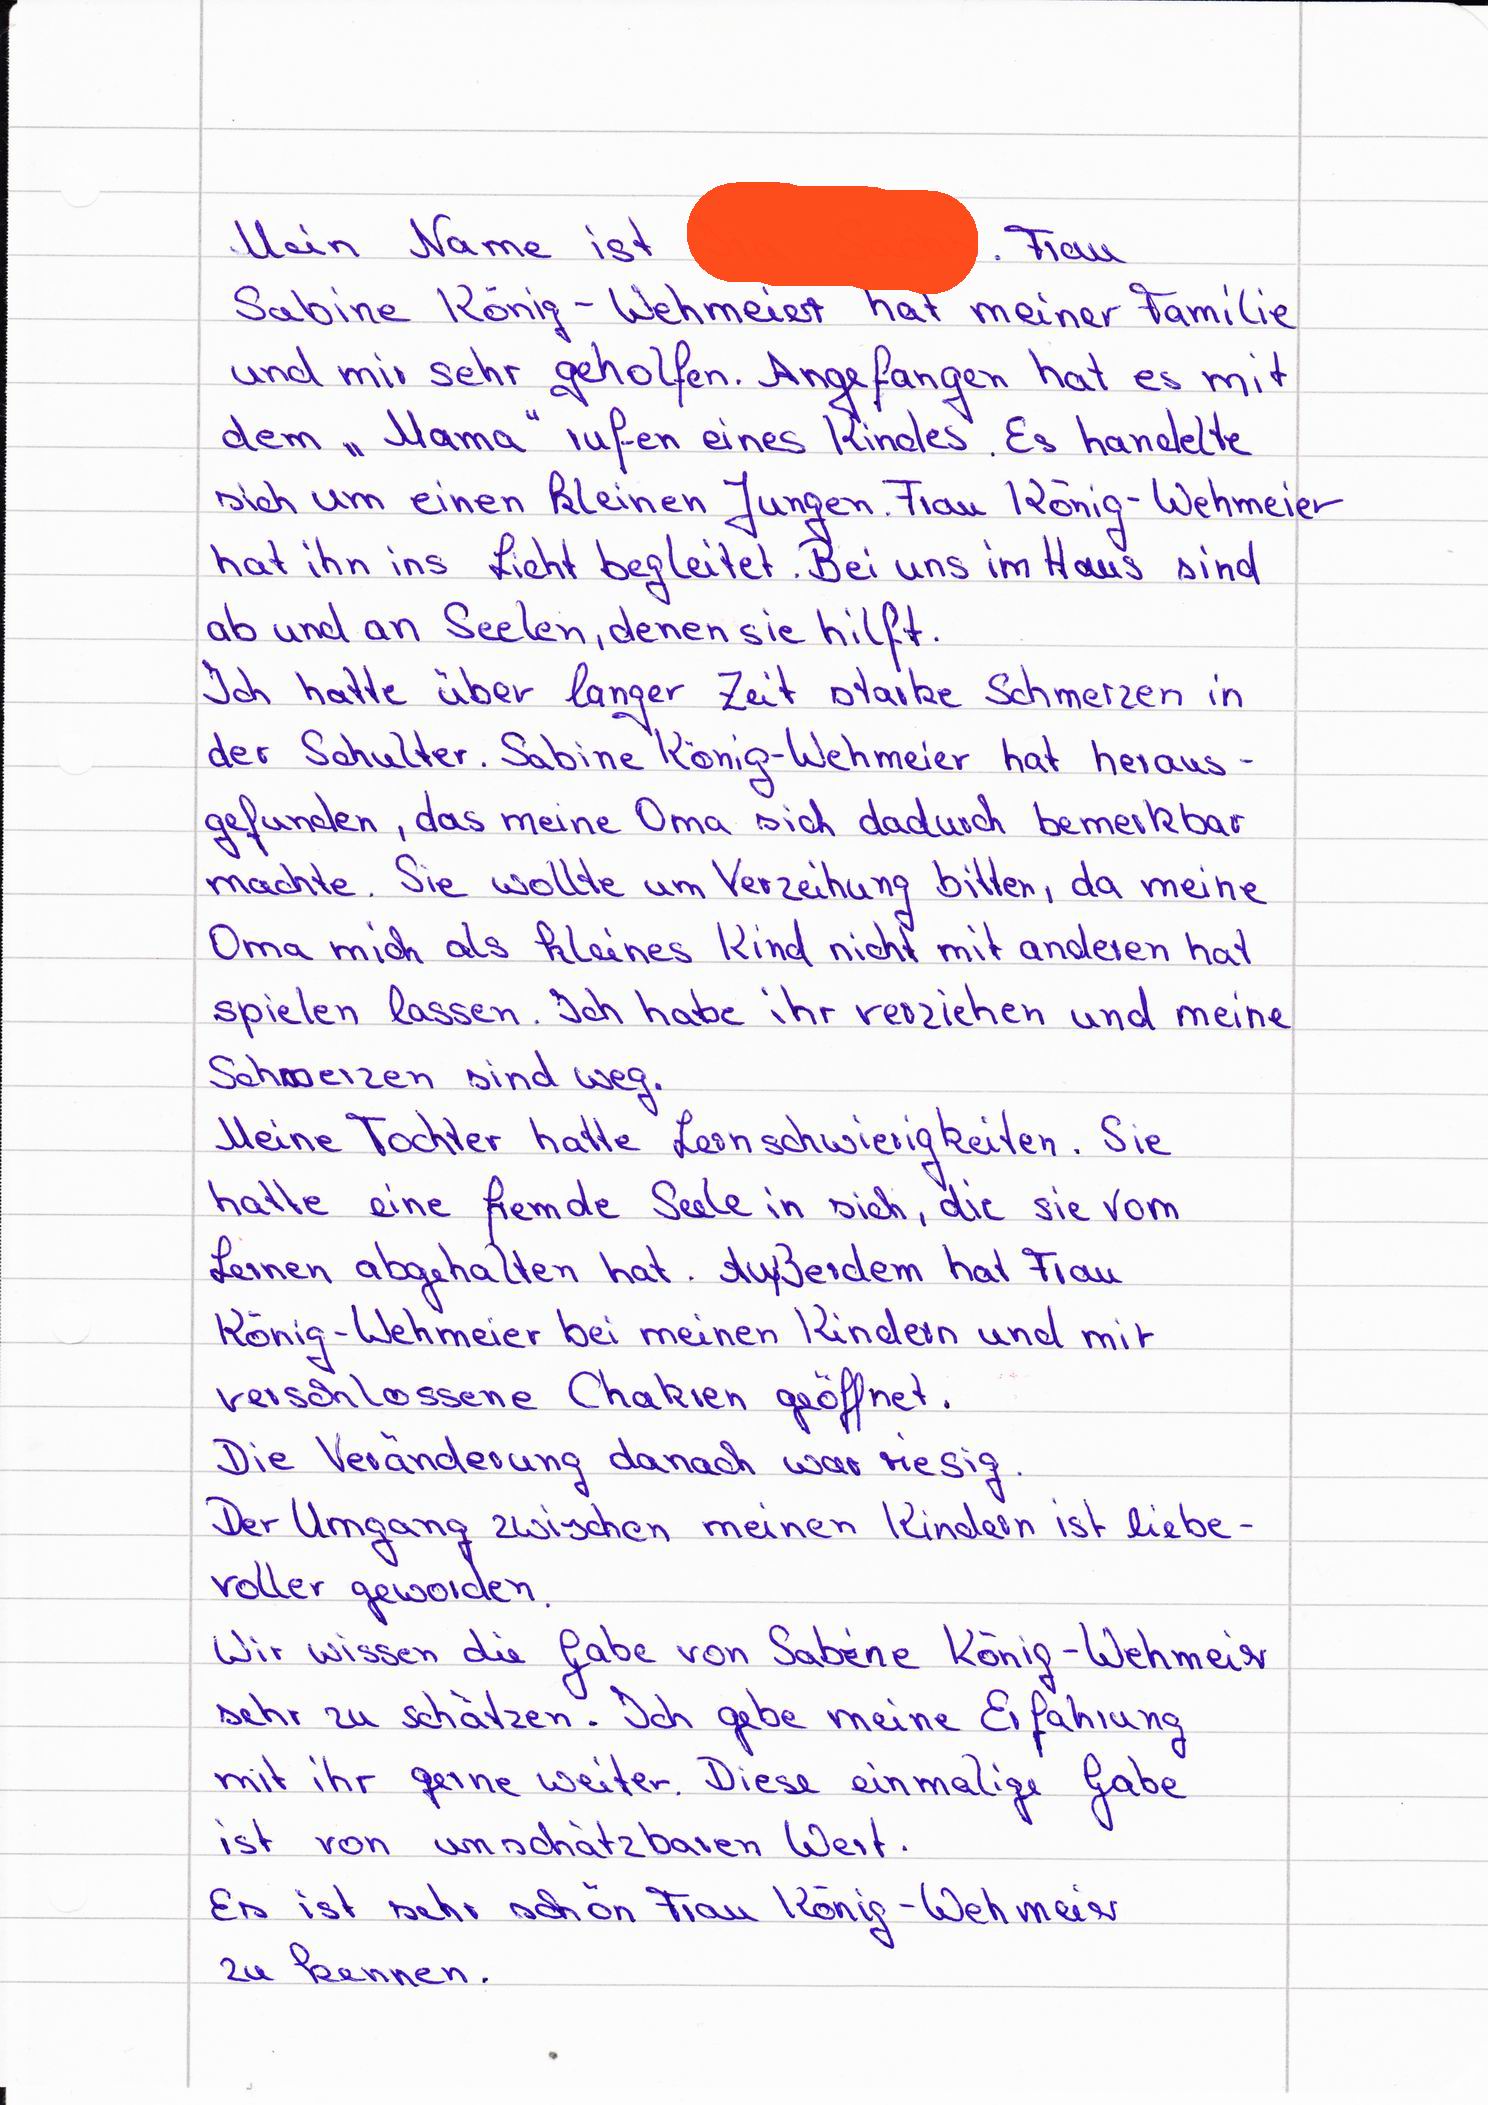 Mein Name ist . Frau
Sabine König-Wehmeier hat meiner Familie
und mir sehr geholfen. Angefangen hat es mit
dem „Mama“ rufen eines Kindes. Es handelte
sich um einen kleinen Jungen. Frau König-Wehmeier
hat ihn ins Licht begleitet. Bei uns im Haus sind
ab und an Seelen, denen sie hilft.
Ich hatte über langer Zeit starke Schmerzen in
der Schulter. Sabine König-Wehmeier hat heraus-
gefunden, das meine Oma sich dadurch bemerkbar
machte. Sie wollte um Verzeihung bitten, da meine
Oma mich als kleines Kind nicht mit anderen hat
spielen lassen. Ich habe ihr verziehen und meine
Schmerzen sind weg.
Meine Tochter hatte Lernschwierigkeiten. Sie
hatte eine fremde Seele in sich, die sie vom
Lernen abgehalten hat. Außerdem hat Frau
König-Wehmeier bei meinen Kindern und mir
verschlossene Chakren geöffnet.
Die Veränderung danach war riesig.
Der Umgang zwischen meinen Kindern ist liebe-
voller geworden.
Wir wissen die Gabe von Sabine König-Wehmeier
sehr zu schätzen. Ich gebe meine Erfahrung
mit ihr gerne weiter. Diese einmalige Gabe
ist von unschätzbaren Wert.
Es ist sehr schön Frau König-Wehmeier
zu kennen.